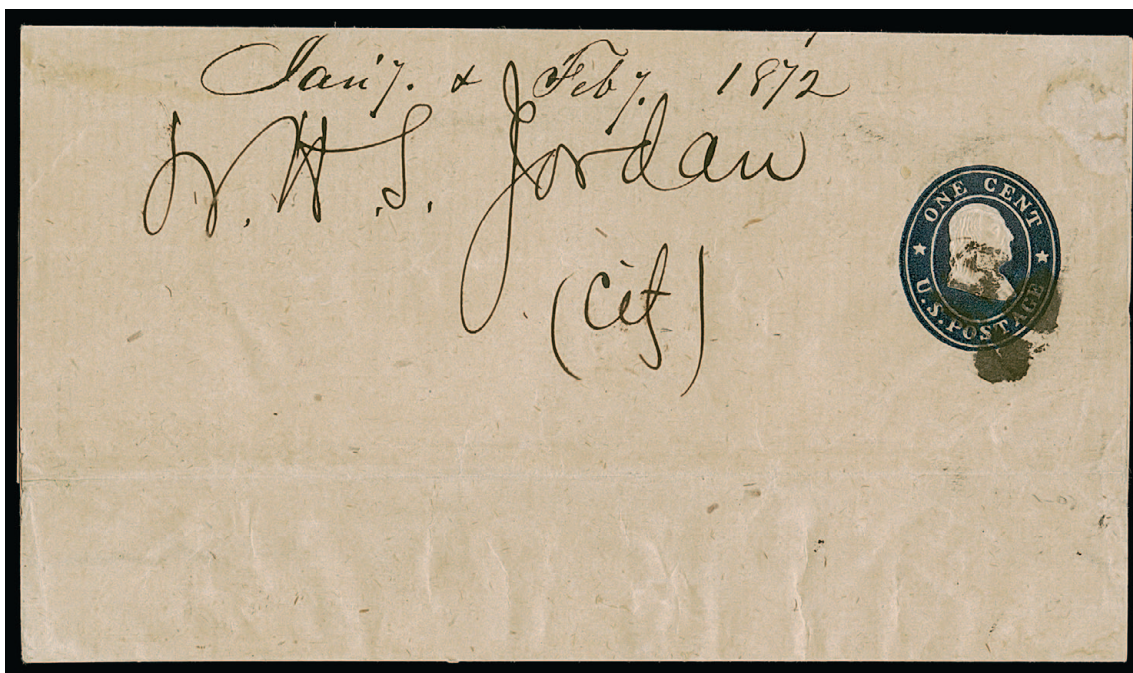 Jan'y. & Feb'y. 1872
W. H. S. Jordan
(City)
ONE CENT
U.S. POSTAGE